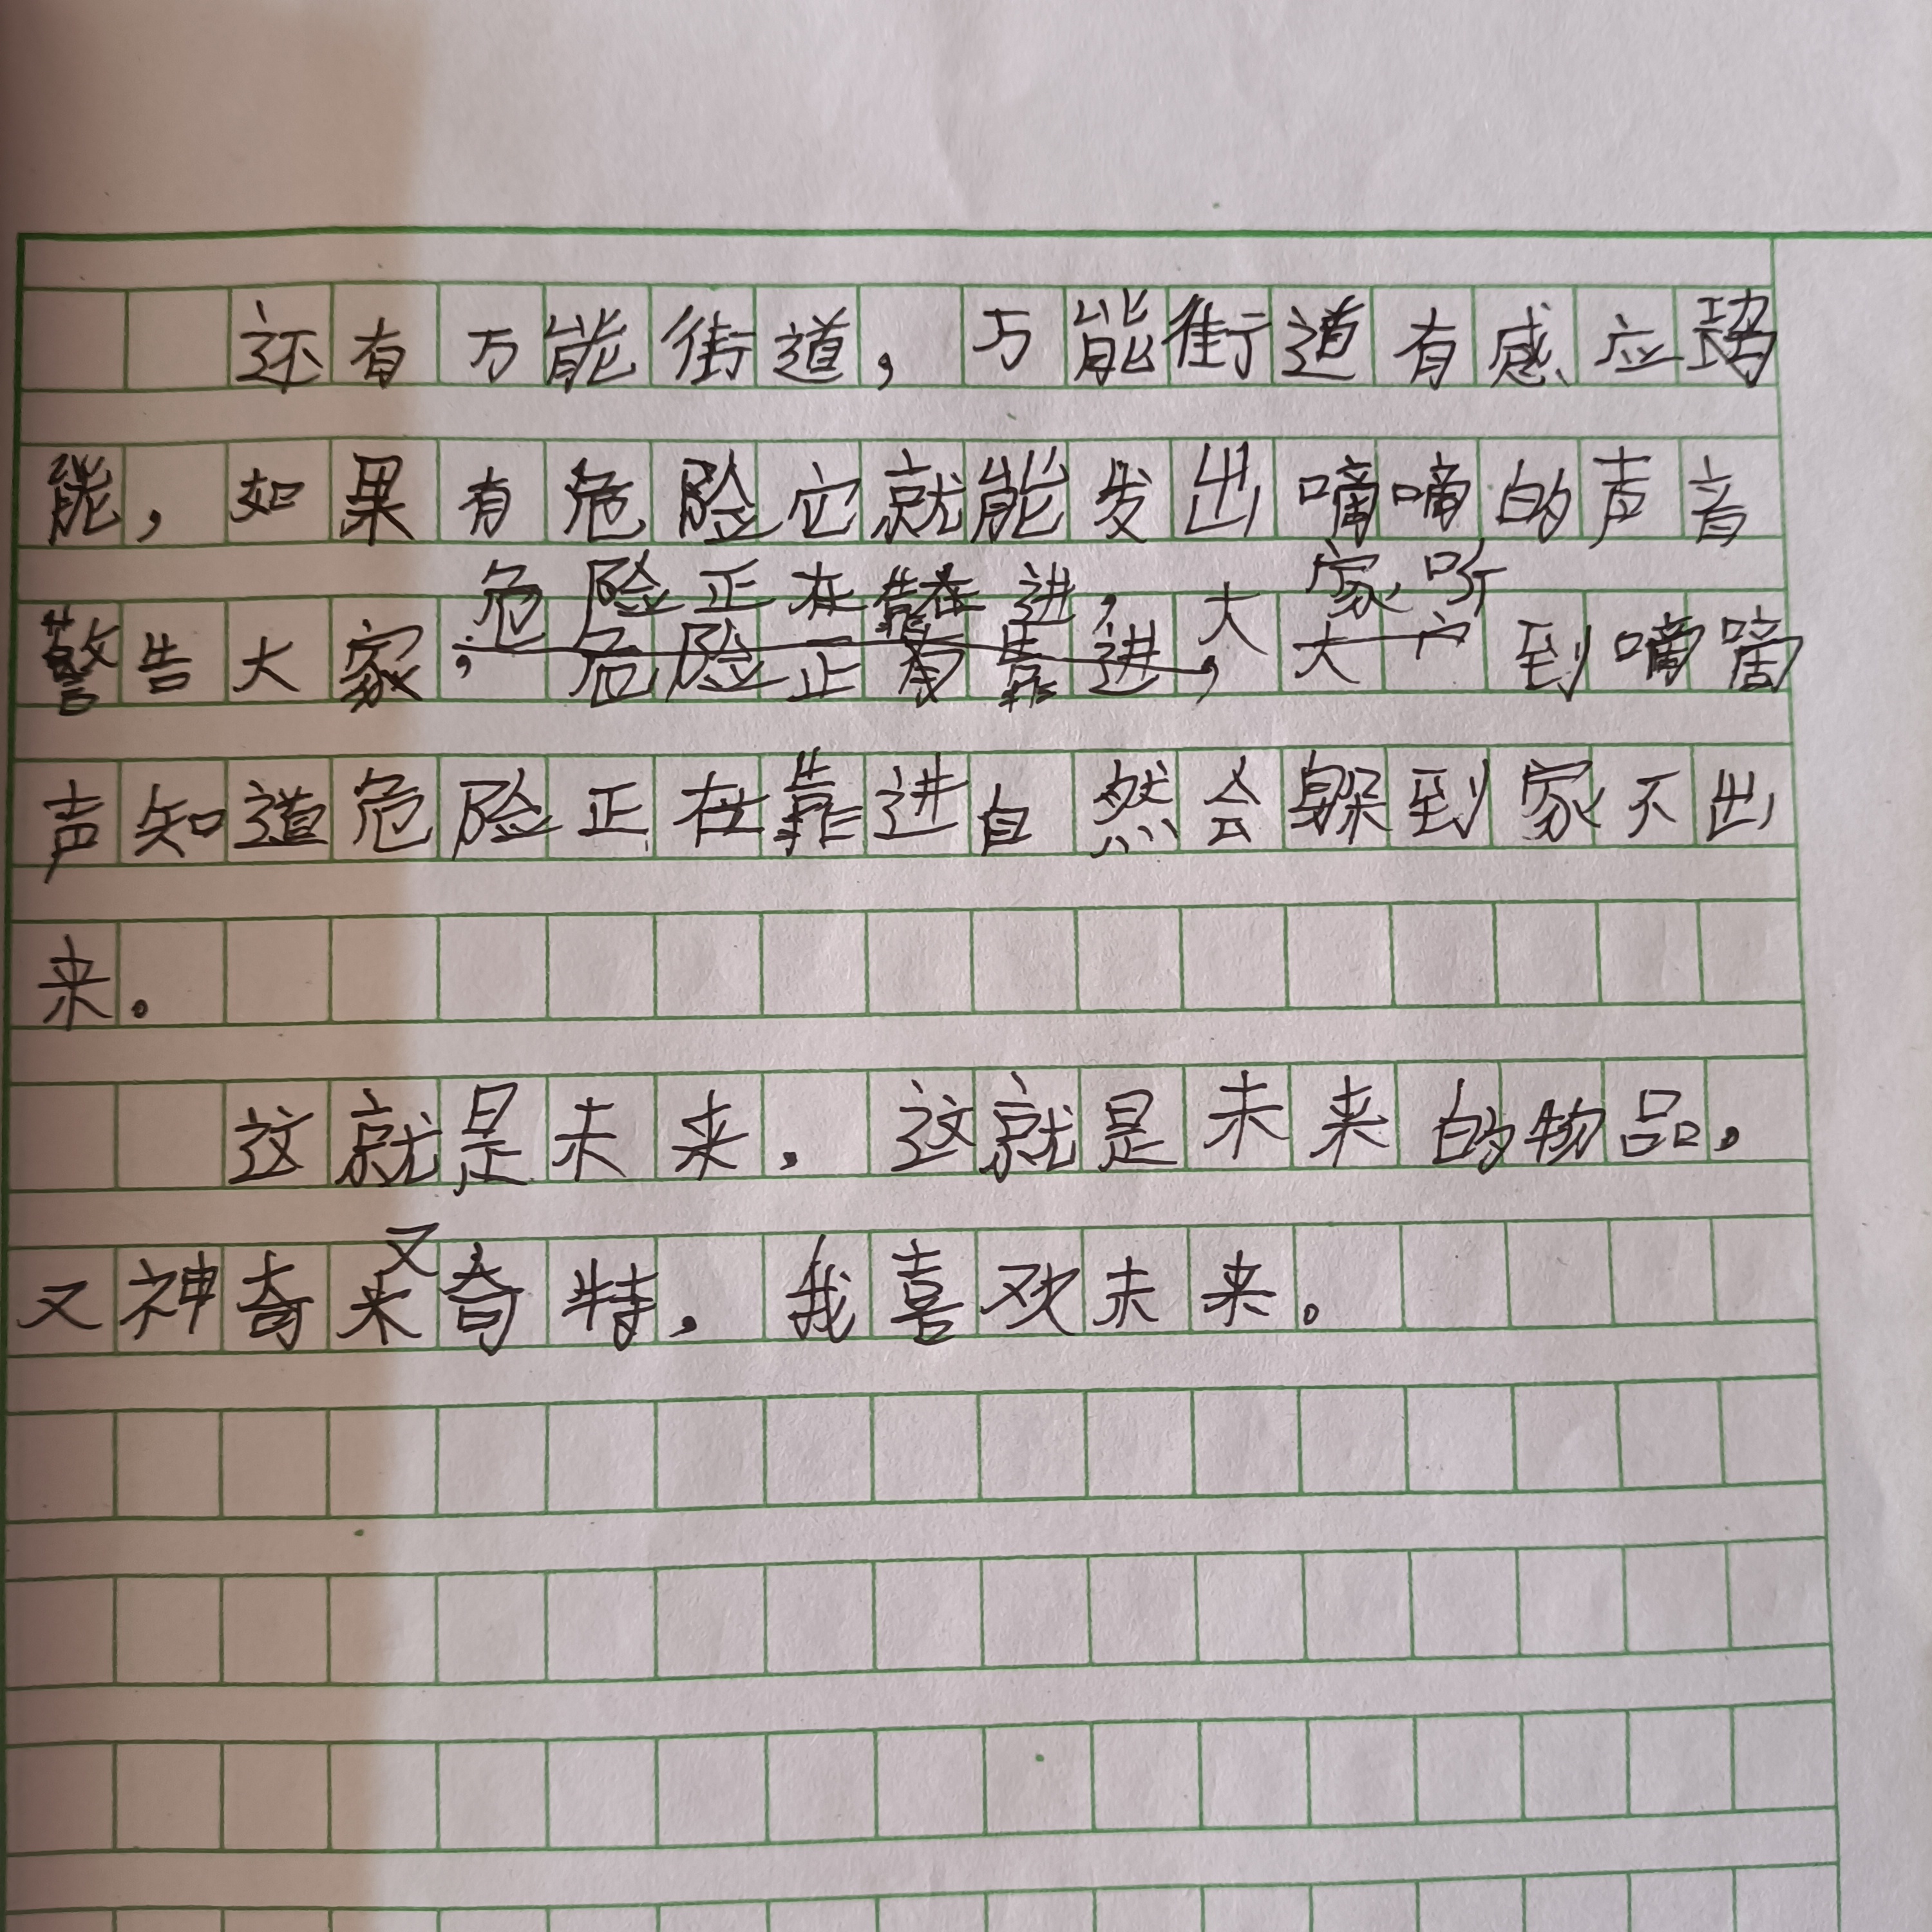 还有万能街道，万能街道有感应
能，如果有危险它就能发出嘀嘀的声音
危险正在靠进，大家听
警告大家，危险正有靠进，大户到嘀嘀
声知道危险正在靠进自然会躲到家不出
来。
这就是未来，这就是未来的物品，
又
又神奇来奇特，我喜欢未来。